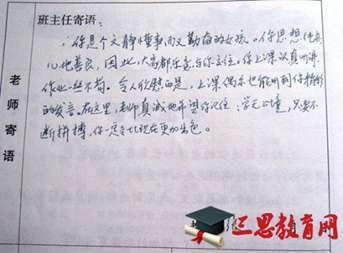 班主任寄语:
你是个文静懂事而又勤奋的女孩。你思想纯真
心地善良,因此,大家都乐意与你交往。你上课认真听讲
作业一丝不苟。令人欣慰的是,上课偶尔也能听到你精彩
的发言。在这里,老师真诚地希望你记住:学无止境,只要不
断拼搏,你一定会比现在更加出色。
老师寄语
三思教育网